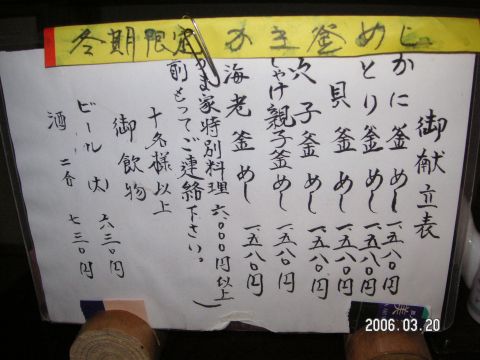 冬期限定 かき釜めし
御献立表
かに釜めし 一、五八〇円
とり釜めし 一、五八〇円
貝釜めし 一、五八〇円
次子釜めし 一、五八〇円
しゃけ親子釜めし 一、五八〇円
海老釜めし 一、五八〇円
かま家特別料理 六、〇〇〇円以上
前もってご連絡下さい。
十名様以上
御飲物
ビール(大) 六三〇円
酒 二合 七三〇円
2006.03.20